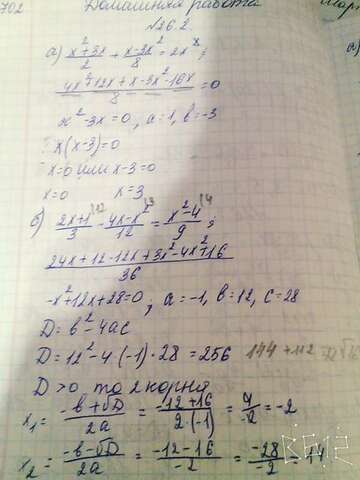 702 Домашняя работа
№26.2.
а) (x²+3x)/2 + (x-3x²)/8 = 2x ⁸;
(4x²+12x+x-3x²-16x)/8 = 0
x²-3x=0, a=1, b=-3
x(x-3)=0
x=0 или x-3=0
x=0 x=3
б) (2x+1)/3 ¹² - (4x-x²)/12 ³ = (x²-4)/9 ⁴;
(24x+12-12x+3x²-4x²+16)/36
-x²+12x+28=0; a=-1, b=12, c=28
D=b²-4ac
D=12²-4·(-1)·28=256 144+112
D>0, то 2 корня
x₁= (-b+√D)/2a = (-12+16)/2·(-1) = 4/-2 = -2
x₂= (-b-√D)/2a = (-12-16)/-2 = -28/-2 = 14